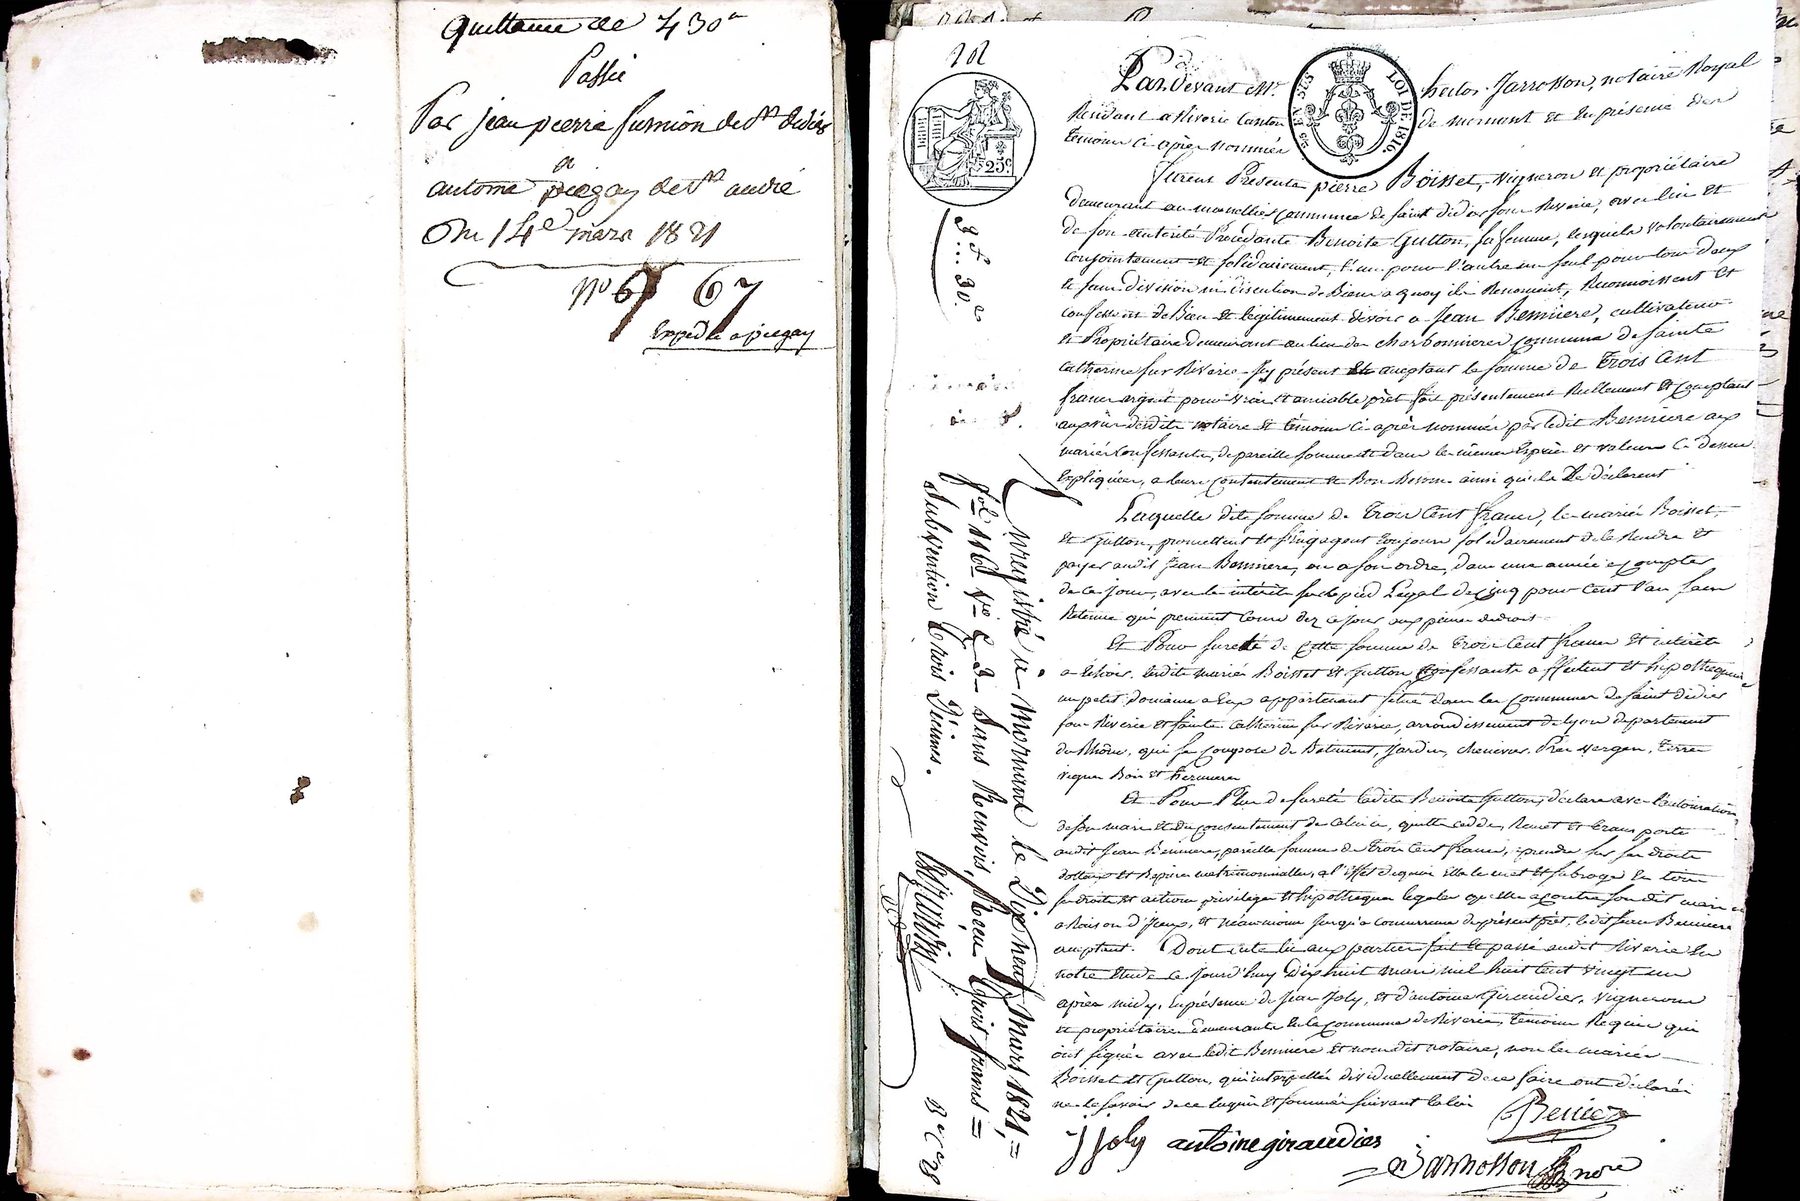 Quittance de 430 ₶
Passée
Par jean pierre fumion de St didier
a
antoine piegay de St andré
Du 14e mars 1821
No 67 67
Expédié a piegay
202
25c
EN SUS
LOI DE 1816.
3f.. 30c
Pardevant Me. hector Jarrosson, notaire Royal
Résidant a Riverie Canton de mornant et en présence des
témoins ci après nommés
furent Présents pierre Boisset, vigneron et propriétaire
demeurant au commune de saint didier sous Riverie, et
de son autorité Procédante Benoite Gutton, sa femme, lesquels volontairement
conjointement et solidairement, l'un pour l'autre un seul pour tous deux
et sans division ni discution de Biens a quoy ils Renoncent, Reconnoissent et
confessent de Bien et légitimement devoir a Jean Benniere, cultivateur
et Propriétaire demeurant au lieu des charbonnieres commune de sainte
Catherine sur Riverie icy présent et acceptant la somme de Trois Cent
francs argent pour vrai et amiable prêt fait présentement Réellement et comptant
au vu desdits notaire et témoins ci après nommés par ledit Benniere aux
mariés confessants, de pareille somme et dans les mêmes Espèces et valeurs Ci dessus
Expliquées, a leurs contentement et Bon Besoin ainsi qu'ils Le déclarent
Laquelle dite somme de Trois Cent francs, les mariés Boisset
et Gutton, promettent et s'engagent toujours solidairement de la Rendre et
payer audit Jean Benniere, ou a son ordre, dans une année a compter
de ce jour, avec les intérêts sur le pied Légal de cinq pour Cent l'an sans
Retenue qui prennent Cours dez ce jour aux peines de droit
Et Pour sureté de cette somme de trois Cent francs et intérêts
a Echoir, lesdits mariés Boisset et Gutton Confessants affectent et hipothequent
un petit domaine a Eux appartenant situé dans les Communes de saint didier
sous Riverie et sainte Catherine sur Riverie, arrondissement de Lyon département
du Rhône, qui se Compose de Batiment, Jardin, chenevier, Prés verger, terres
vignes Bois et hermures
Et Pour Plus de sureté ladite Benoite Gutton, déclare avec l'autorisation
de son mari et du consentement de Celui ci, quitte cedde, Remet et transporte
audit Jean Bennière, pareille somme de trois Cent francs, a prendre sur ses droits
dottaux et Reprises matrimonialles, a l'Effet de quoi Elle le met et subroge En tous
ses droits et actions privileges et hipotheques legales quelle a contre son dit mari
a Raison d'Iceux, et néanmoins jusqu'a concurrence du présent prêt, ledit Jean Benniere
acceptant. Dont acte lu aux parties fait et passé audit Riverie En
notre Etude ce jourd'huy dixhuit mars mil huit cent vingt un
après midy, En présence de Jean Joly, et d'antoine Giraudier, vignerons
et propriétaires demeurants En la Commune de Riverie, témoins Requis qui
ont signé avec ledit Benniere et nous dit notaire, non les mariés
Boisset et Gutton, qui interpellés dividuellement de ce faire ont déclaré
ne le savoir de ce Enquis et sommés suivant la loi
Bennier
j joly antoine giraudier
Jarrosson nore
Enregistré à Mornant le Dix neuf Mars 1821, =
fol 116 Vo C. 3 Sans Renvois, Reçu trois francs =
et Subvention trois Décimes.